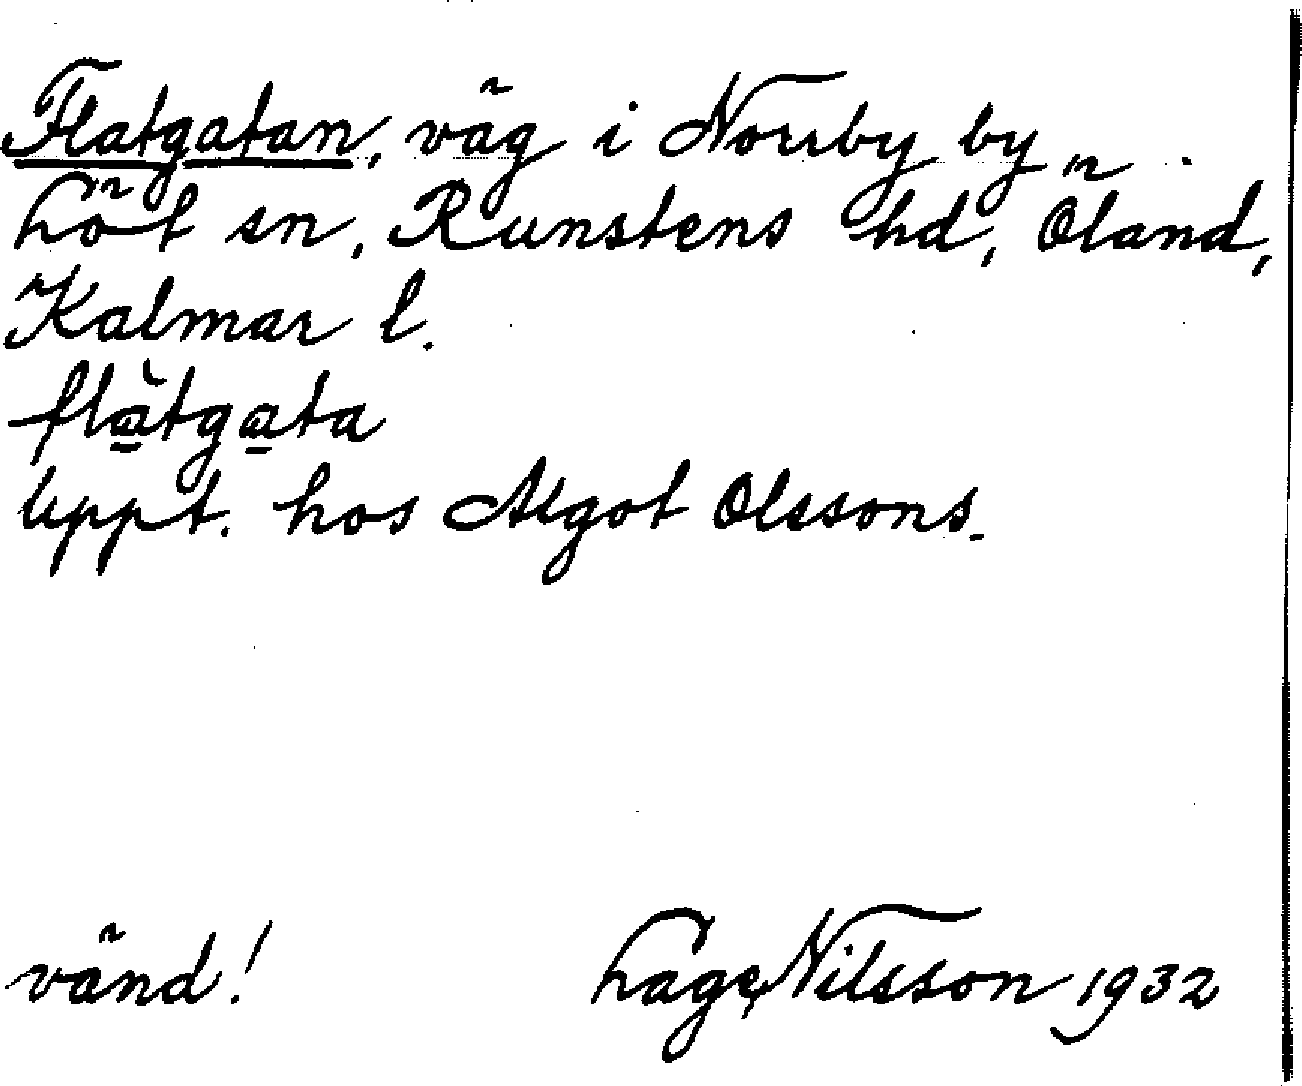 Flatgatan, väg i Norrby by
Löt sn, Runstens hd, Öland,
Kalmar l.
flàtgata
Uppt. hos Algot Olssons.
vänd! Lage Nilsson 1932